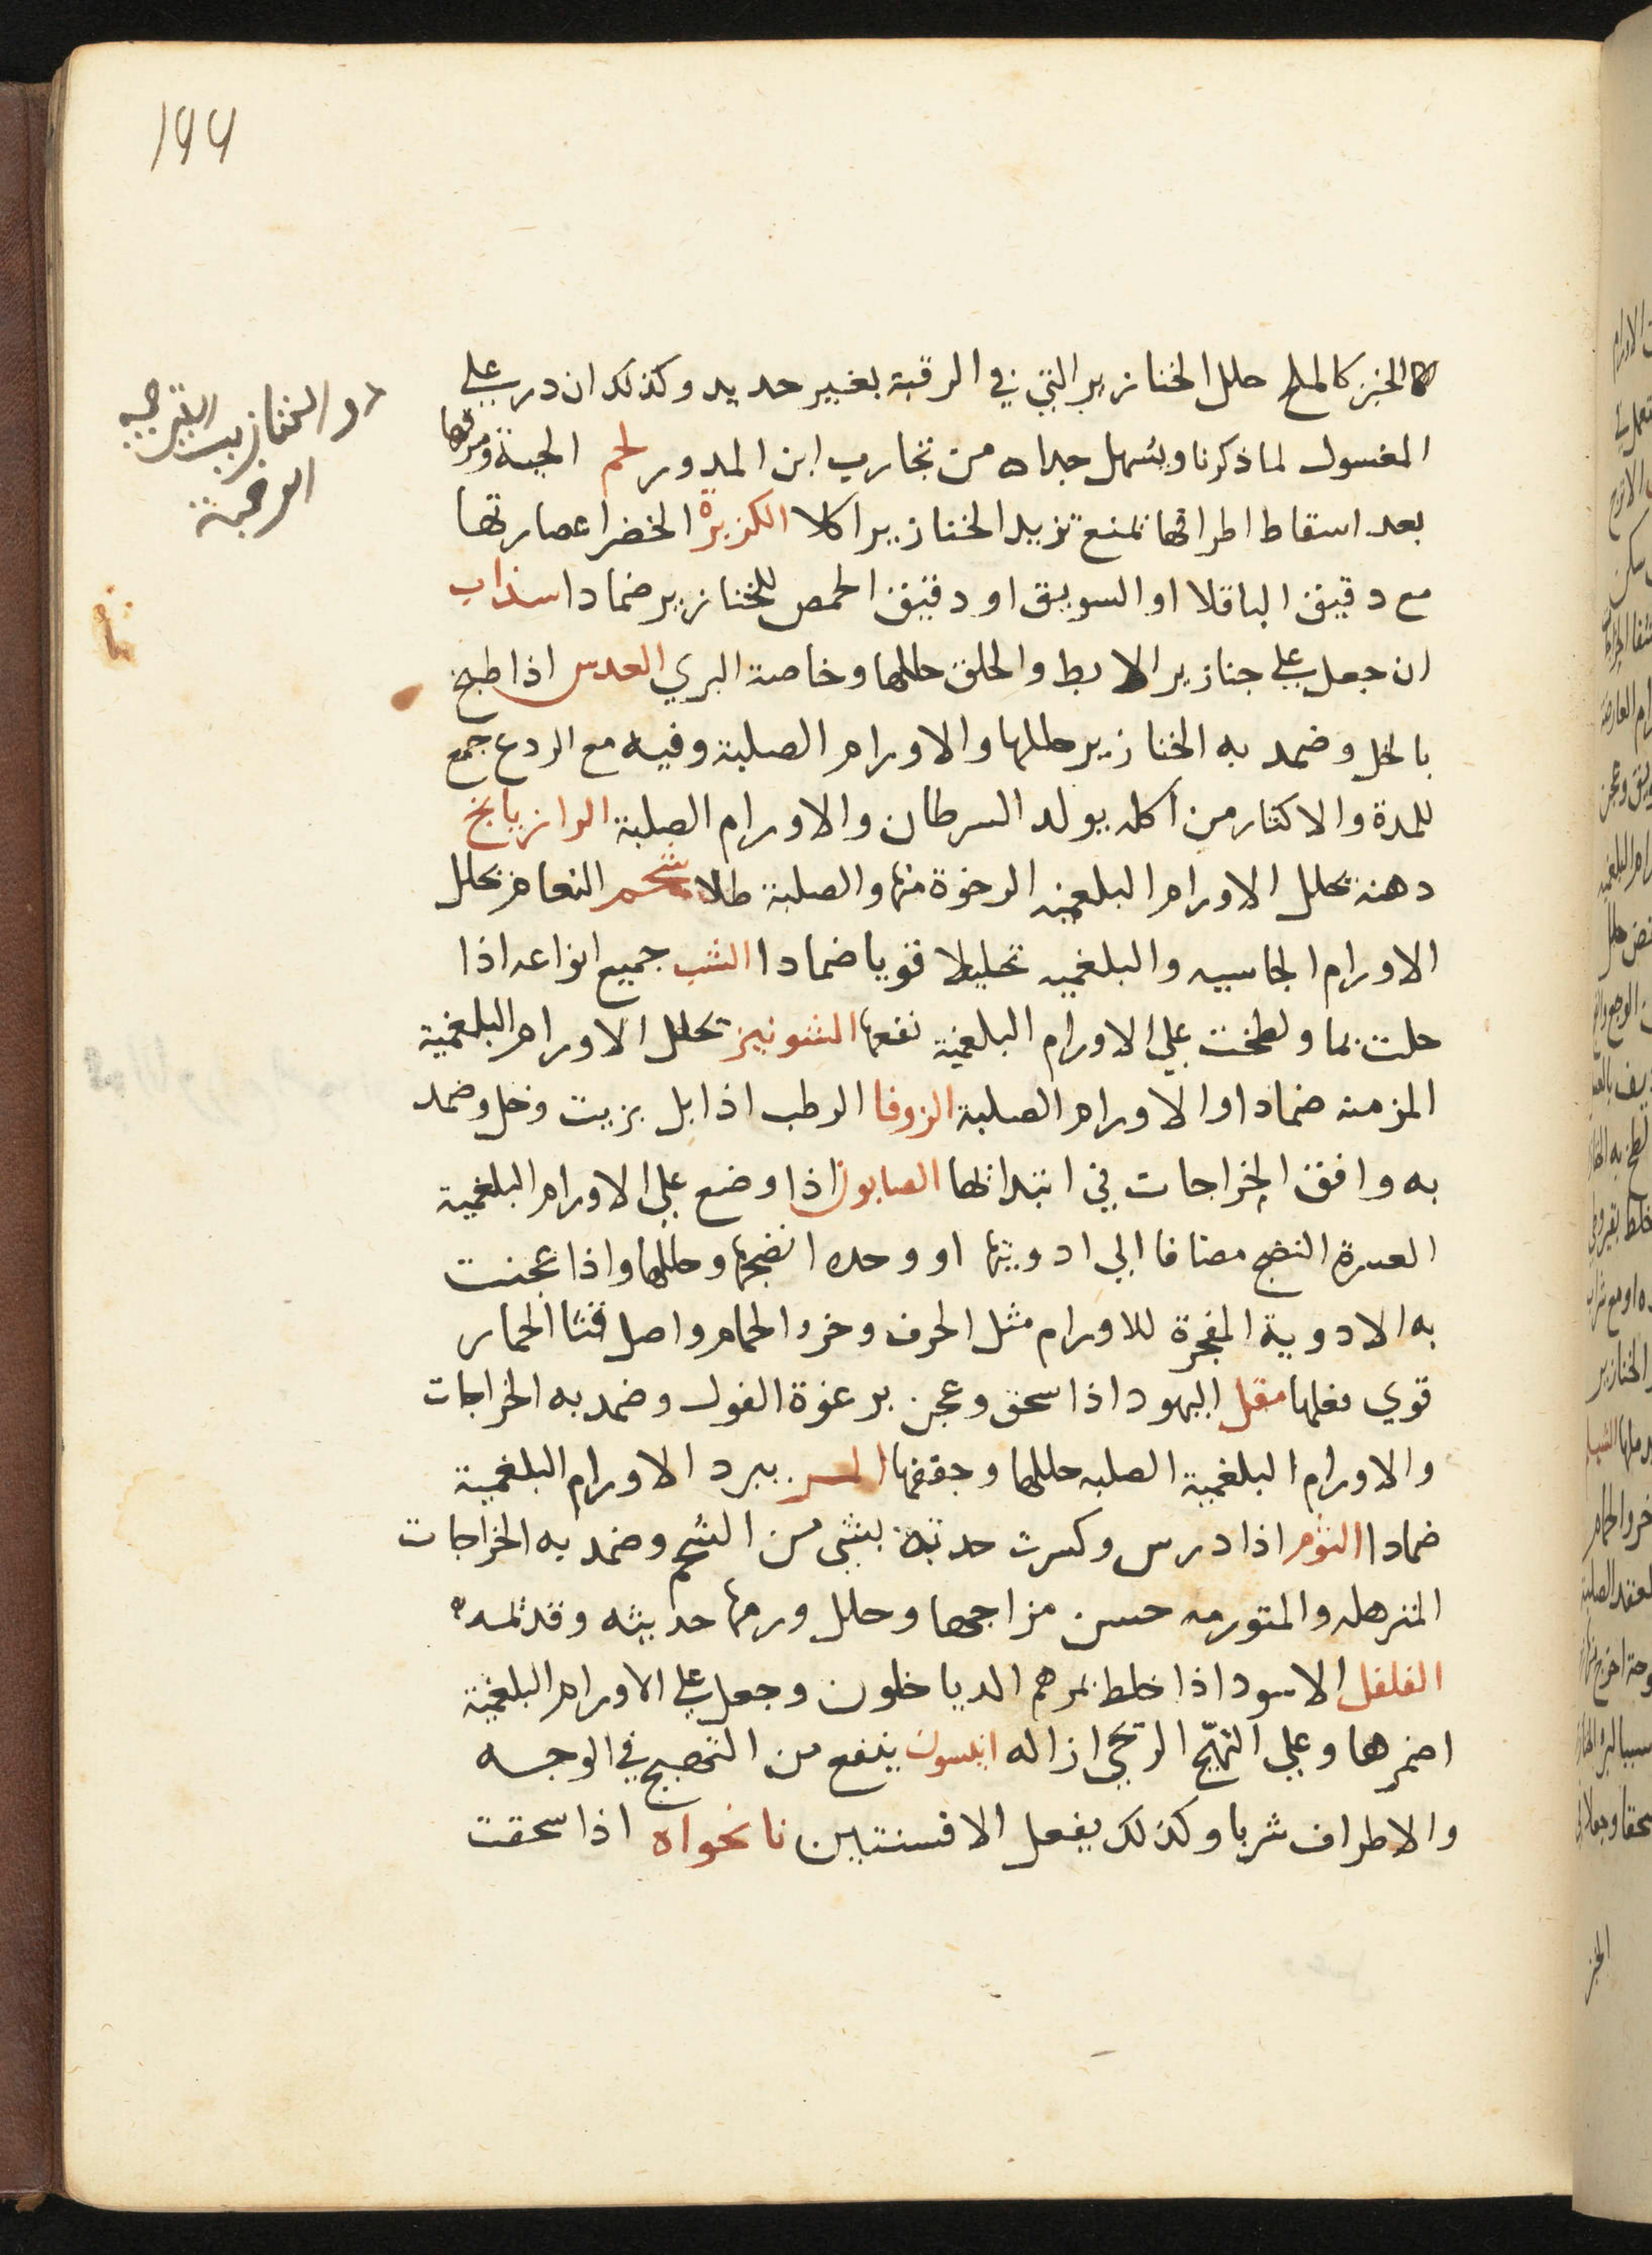 199
الخبز كالملح حلل الخنازير التي في الرقبة بغير حديد وكذلك ان درب علي
المغسول لما ذكرنا ويسهل جداه من تجارب ابن المدور لحم الحية ومرقها
بعد اسقاط اطرافها تمنع تزيد الخنازير اكلا الكزبرة الخضرا عصارتها
مع دقيق الباقلا او السويق او دقيق الحمص للخنازير ضمادا سذاب
ان جعل علي جنازير الابط والحلق حللها وخاصة البري العدس اذا طبخ
بالخل وضمد به الخنازير حللها والاورام الصلبة وفيه مع الردع جمع
للمدة والاكثار من اكله يولد السرطان والاورام الصلبة الرازيانج
دهنه تحلل الاورام البلغميه الرخوة منها والصلبة طلا شحم النعام تحلل
الاورام الجاسيه والبلغميه تحليلا قويا ضمادا الشب جميع انواعه اذا
حلت بما ولطخت علي الاورام البلغمية نفعها الشونيز تحلل الاورام البلغمية
المزمنه ضمادا والاورام الصلبة الزوفا الرطب اذا بل بزيت وخل وضمد
به وافق الخراجات في ابتدائها الصابون اذا وضع علي الاورام البلغمية
العسرة النضج مضافا الي ادويتها او وحده انضجها وحللها واذا عجنت
به الادوية المفجرة للاورام مثل الحرف وخرو الحمام واصل قثا الحمار
قوي فعلها مقل اليهود اذا سحق وعجن برغوة الفول وضمد به الخراجات
والاورام البلغمية الصلبه حللها وجففها يبرد الاورام البلغمية
ضمادا الثوم اذا درس وكسرت حدته بشي من الشحم وضمد به الخراجات
المترهله والمتورمه حسن مزاجها وحلل ورمها حديثه وقديمه
الفلفل الاسود اذا خلط بمرهم الدياخلون وجعل علي الاورام البلغمية
اضمرها وعلي التهيج الريحي ازاله انيسون ينفع من التهيج في الوجه
والاطراف شربا وكذلك يفعل الافسنتين نانخواه اذا سحقت
الخنازير